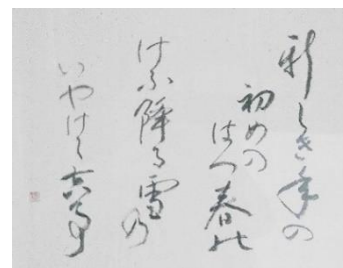 新しき年の
初めの
はつ春の
けふ降る雪乃
いやしけ吉事